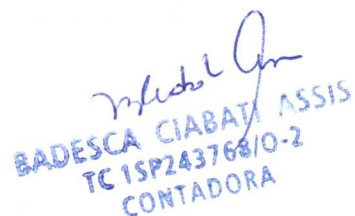 BADESCA CIABATI ASSIS
TC 1SP243768/O-2
CONTADORA